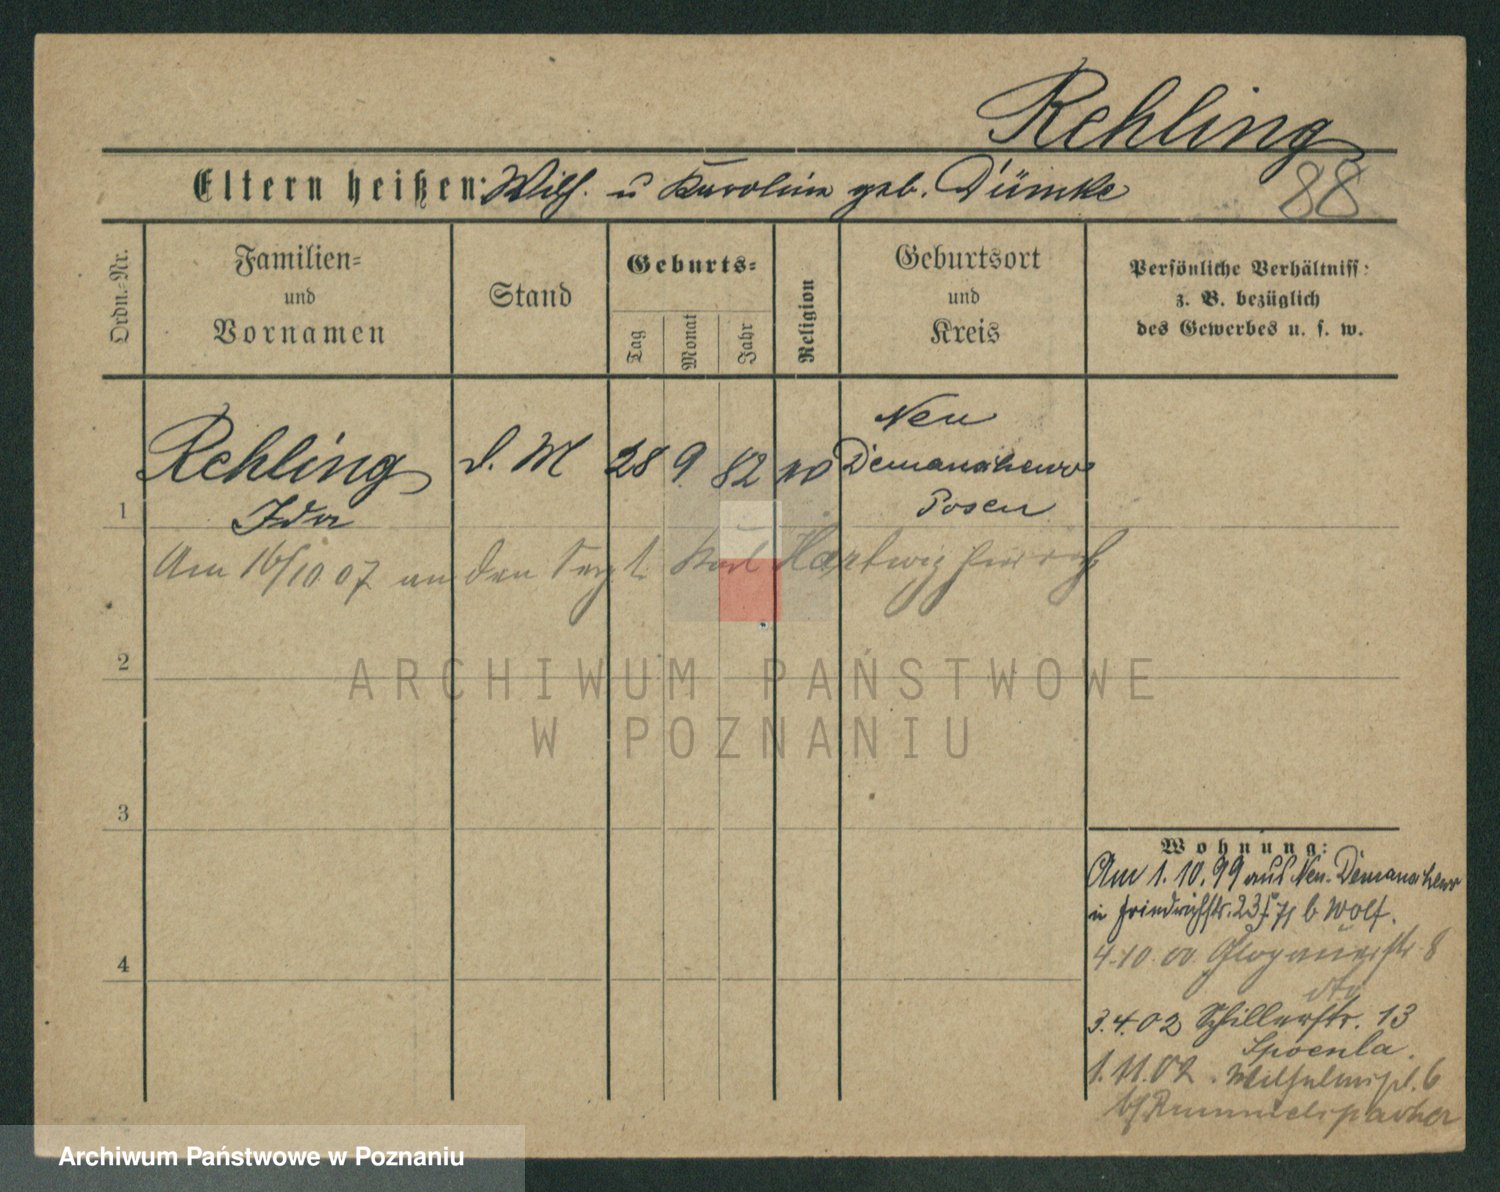 Rehling
Eltern heißen: Wilh. u Karoline geb. Dümke
88
Ordn.-Nr.
Familien-
und
Vornamen
Stand
Geburts-
Tag
Monat
Jahr
Religion
Geburtsort
und
Kreis
Persönliche Verhältniss:
z. B. bezüglich
des Gewerbes u. s. w.
1
Rehling
Ida
d. M
28
9.
82
Neu
Posen
Am 16/10 07 an den Sergt. Karl Hartwig
2
ARCHIWUM PAŃSTWOWE
W POZNANIU
3
Wohnung:
Am 1. 10. 99 aus Neu-
in Friedrichstr. 23 b Wolf.
4
4.10.00 Glogauerstr 8
3.4.02 Schillerstr. 13
1.11.02. Wilhelmspl. 6
Archiwum Państwowe w Poznaniu